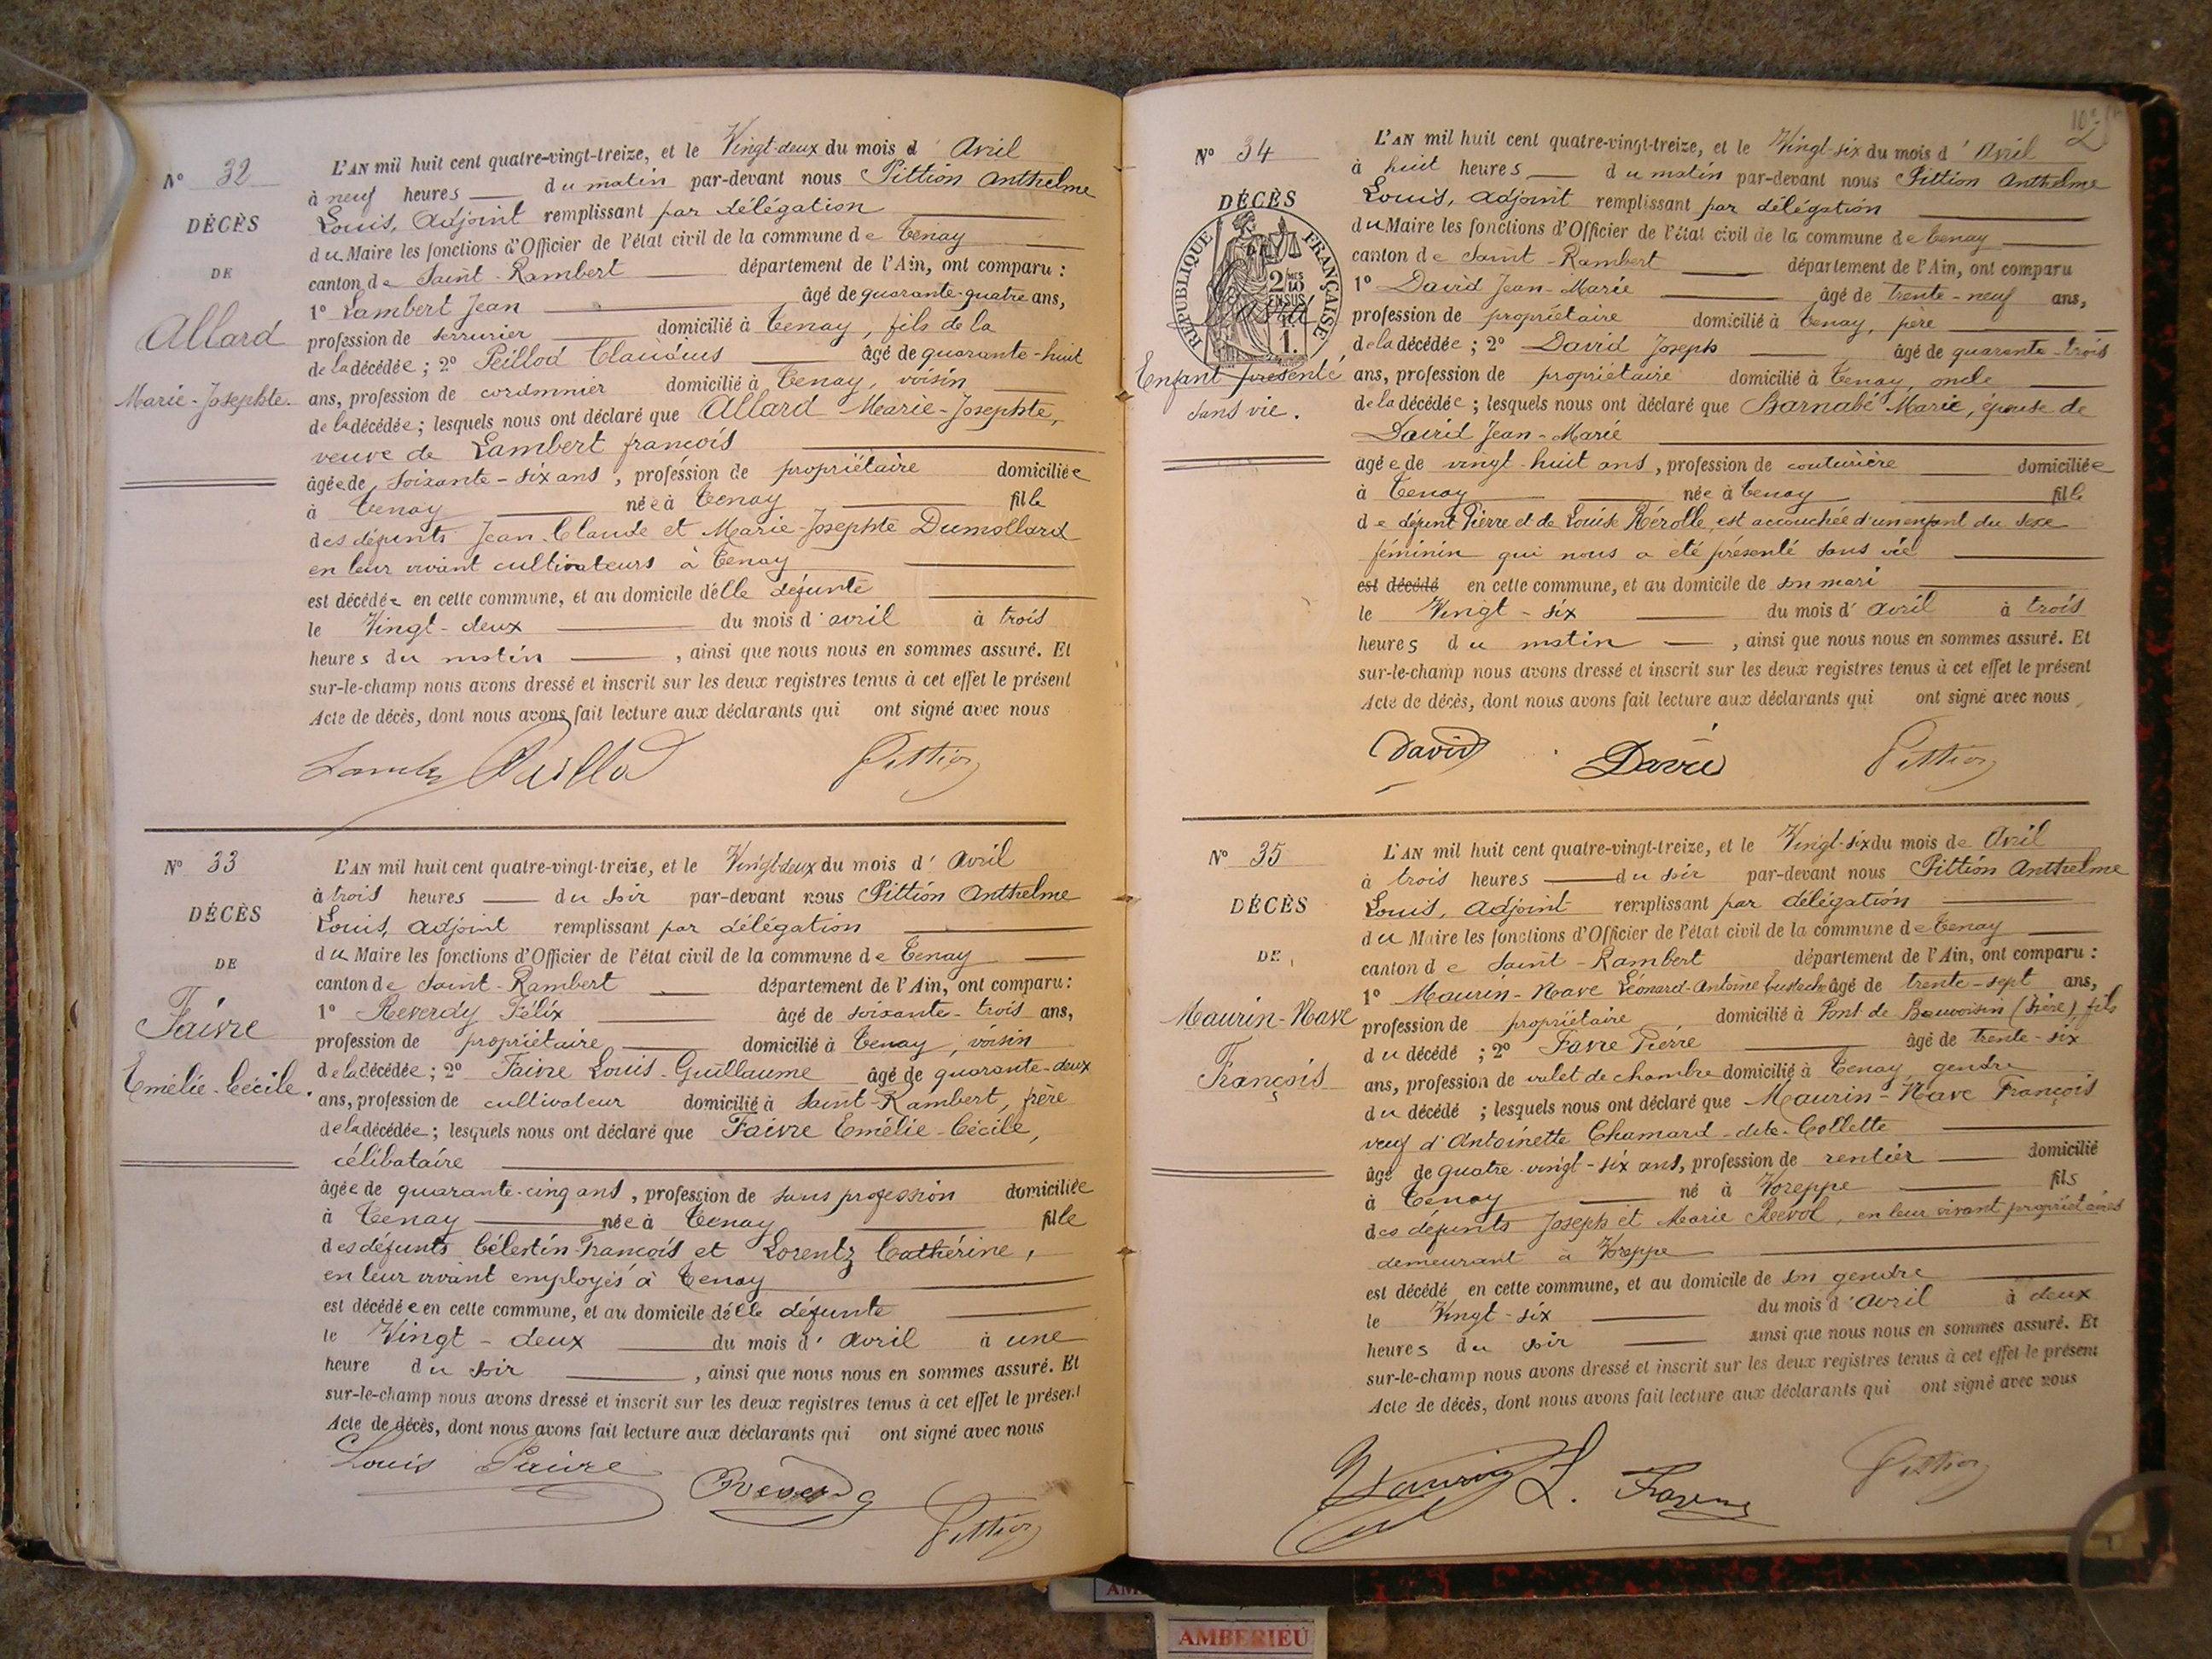 N° 32
DÉCÈS
DE
Allard
Marie-Josephte.
L'AN mil huit cent quatre-vingt-treize, et le Vingt-deux du mois d' Avril
à neuf heures du matin par-devant nous Pittion Anthelme
Louis, Adjoint remplissant par délégation
du Maire les fonctions d'Officier de l'état civil de la commune de Tenay
canton de Saint-Rambert département de l'Ain, ont comparu :
1° Lambert Jean âgé de quarante-quatre ans,
profession de serrurier domicilié à Tenay, fils de la
de la décédée ; 2° Peillod Claudius âgé de quarante-huit
ans, profession de cordonnier domicilié à Tenay, voisin
de la décédée ; lesquels nous ont déclaré que Allard Marie-Josephte,
veuve de Lambert françois
âgée de soixante-six ans, profession de propriétaire domiciliée
à Tenay née à Tenay fille
des défunts Jean-Claude et Marie-Josephte Dumollard
en leur vivant cultivateurs à Tenay
est décédée en cette commune, et au domicile d'elle défunte
le Vingt-deux du mois d'avril à trois
heures du matin, ainsi que nous nous en sommes assuré. Et
sur-le-champ nous avons dressé et inscrit sur les deux registres tenus à cet effet le présent
Acte de décès, dont nous avons fait lecture aux déclarants qui ont signé avec nous
Peillod Pittion
N° 33
DÉCÈS
DE
Faivre
Emélie-Cécile.
L'AN mil huit cent quatre-vingt-treize, et le Vingt-deux du mois d' Avril
à trois heures du soir par-devant nous Pittion Anthelme
Louis, Adjoint remplissant par délégation
du Maire les fonctions d'Officier de l'état civil de la commune de Tenay
canton de Saint-Rambert département de l'Ain, ont comparu :
1° Reverdy Félix âgé de soixante-trois ans,
profession de propriétaire domicilié à Tenay, voisin
de la décédée ; 2° Faivre Louis-Guillaume âgé de quarante-deux
ans, profession de cultivateur domicilié à Saint-Rambert, frère
de la décédée ; lesquels nous ont déclaré que Faivre Emélie-Cécile,
célibataire
âgée de quarante-cinq ans, profession de sans profession domiciliée
à Tenay née à Tenay fille
des défunts Célestin-François et Lorentz Cathérine,
en leur vivant employés à Tenay
est décédée en cette commune, et au domicile d'elle défunte
le Vingt-deux du mois d' Avril à une
heure du soir, ainsi que nous nous en sommes assuré. Et
sur-le-champ nous avons dressé et inscrit sur les deux registres tenus à cet effet le présent
Acte de décès, dont nous avons fait lecture aux déclarants qui ont signé avec nous
Louis Faivre
Pittion
N° 34
DÉCÈS
RÉPUBLIQUE FRANÇAISE
2 MES
10
EN SUS
1.
Enfant présenté
sans vie.
L'AN mil huit cent quatre-vingt-treize, et le Vingt-six du mois d' Avril
à huit heures du matin par-devant nous Pittion Anthelme
Louis, Adjoint remplissant par délégation
du Maire les fonctions d'Officier de l'état civil de la commune de Tenay
canton de Saint-Rambert département de l'Ain, ont comparu
1° David Jean-Marie âgé de trente-neuf ans,
profession de propriétaire domicilié à Tenay, père
de la décédée ; 2° David Joseph âgé de quarante-trois
ans, profession de propriétaire domicilié à Tenay, oncle
de la décédée ; lesquels nous ont déclaré que Barnabé Marie, épouse de
David Jean-Marie
âgée de vingt-huit ans, profession de couturière domiciliée
à Tenay née à Tenay fille
de défunt Pierre et de Louise Rérolle, est accouchée d'un enfant du sexe
féminin qui nous a été présenté sans vie
est décédé en cette commune, et au domicile de son mari
le Vingt-six du mois d' avril à trois
heures du matin, ainsi que nous nous en sommes assuré. Et
sur-le-champ nous avons dressé et inscrit sur les deux registres tenus à cet effet le présent
Acte de décès, dont nous avons fait lecture aux déclarants qui ont signé avec nous
David David Pittion
N° 35
DÉCÈS
DE
Maurin-Nave
François
L'AN mil huit cent quatre-vingt-treize, et le Vingt-six du mois de Avril
à trois heures du soir par-devant nous Pittion Anthelme
Louis, Adjoint remplissant par délégation
du Maire les fonctions d'Officier de l'état civil de la commune de Tenay
canton de Saint-Rambert département de l'Ain, ont comparu :
1° Maurin-Nave Léonard-Antoine Eustache âgé de trente-sept ans,
profession de propriétaire domicilié à Pont de Beauvoisin (Isère), fils
du décédé ; 2° Favre Pierre âgé de trente-six
ans, profession de valet de chambre domicilié à Tenay, gendre
du décédé ; lesquels nous ont déclaré que Maurin-Nave François
veuf d'Antoinette Chamard-dite-Collette
âgé de quatre-vingt-six ans, profession de rentier domicilié
à Tenay né à Voreppe fils
des défunts Joseph et Marie Reévol, en leur vivant propriétaires
demeurant à Voreppe
est décédé en cette commune, et au domicile de son gendre
le Vingt-six du mois d' Avril à deux
heures du soir ainsi que nous nous en sommes assuré. Et
sur-le-champ nous avons dressé et inscrit sur les deux registres tenus à cet effet le présent
Acte de décès, dont nous avons fait lecture aux déclarants qui ont signé avec nous
Pittion
AMBERIEU